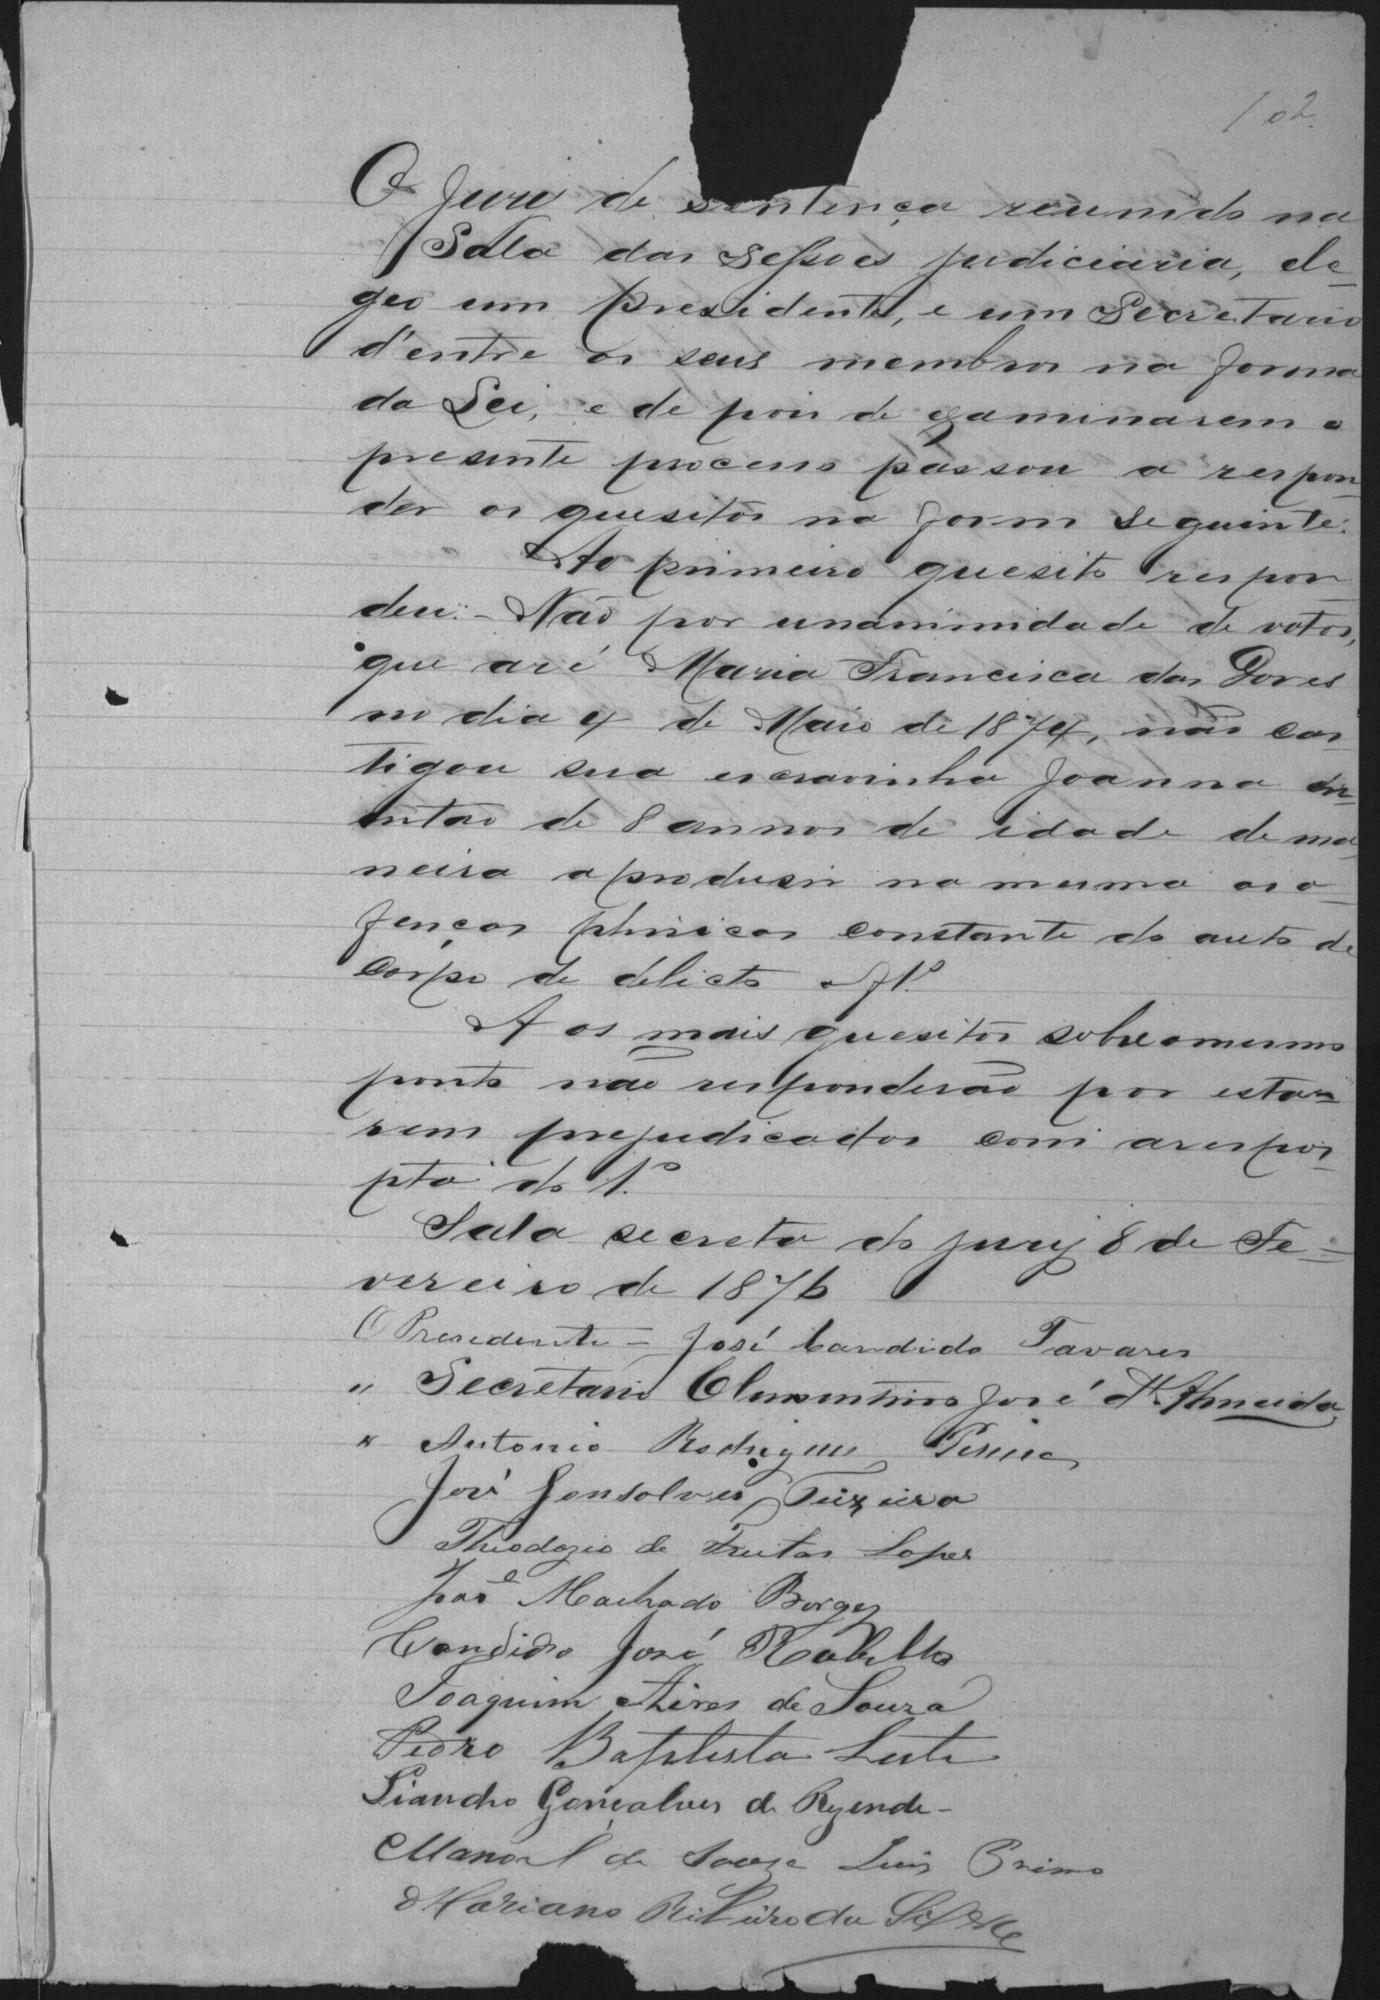 102
O Jury de sentença reunido na
Sala das Sessoes judiciaria, ele-
geo um presidente, e um Secretario
d'entre os seus membros na forma
da Lei, e de pois de examinarem o
presente processo passou a respon-
der os quesitos na form seguinte:
Ao primeiro quesito respon-
deu: - Não por unanimidade de votos,
que aré Maria Francisca das Dores
no dia 4 de Maio de 1874, não cas-
tigou sua escravinha Joanna
então de 8 annos de idade de ma-
neira aprodusir na mesma as o-
fenças phisicas constante do auto de
Corpo de delicto
A os mais quesitos sobre o mesmo
ponto não responderão por esta-
rem prejudicados com arespos-
pta do 1.º
Sala secreta do jury 8 de Fe-
vereiro de 1876
O Presedente - José Candido Tavares
" Secretario Clementino José d'Almeida
" Antonio Rodrigues
José Gonsalves Teixeira
Theodozio de Freitas Lopes
José Machado Borges
Candido José Rabello
Joaquim Aires de Souza
Pedro Baptista Leite
Liandro Gonçalves de Rezende -
Manoel de Souza Luis Primo
Mariano Ribeiro da Silva